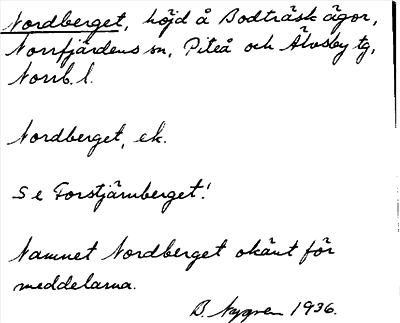 Nordberget, höjd å Bodträsk ägor,
Norrfjärdens sn, Piteå och Älvsby tg,
Norrb. l.
Nordberget, ek.
Se Forstjärnberget!
Namnet Nordberget okänt för
meddelarna.
B. Nygren 1936.